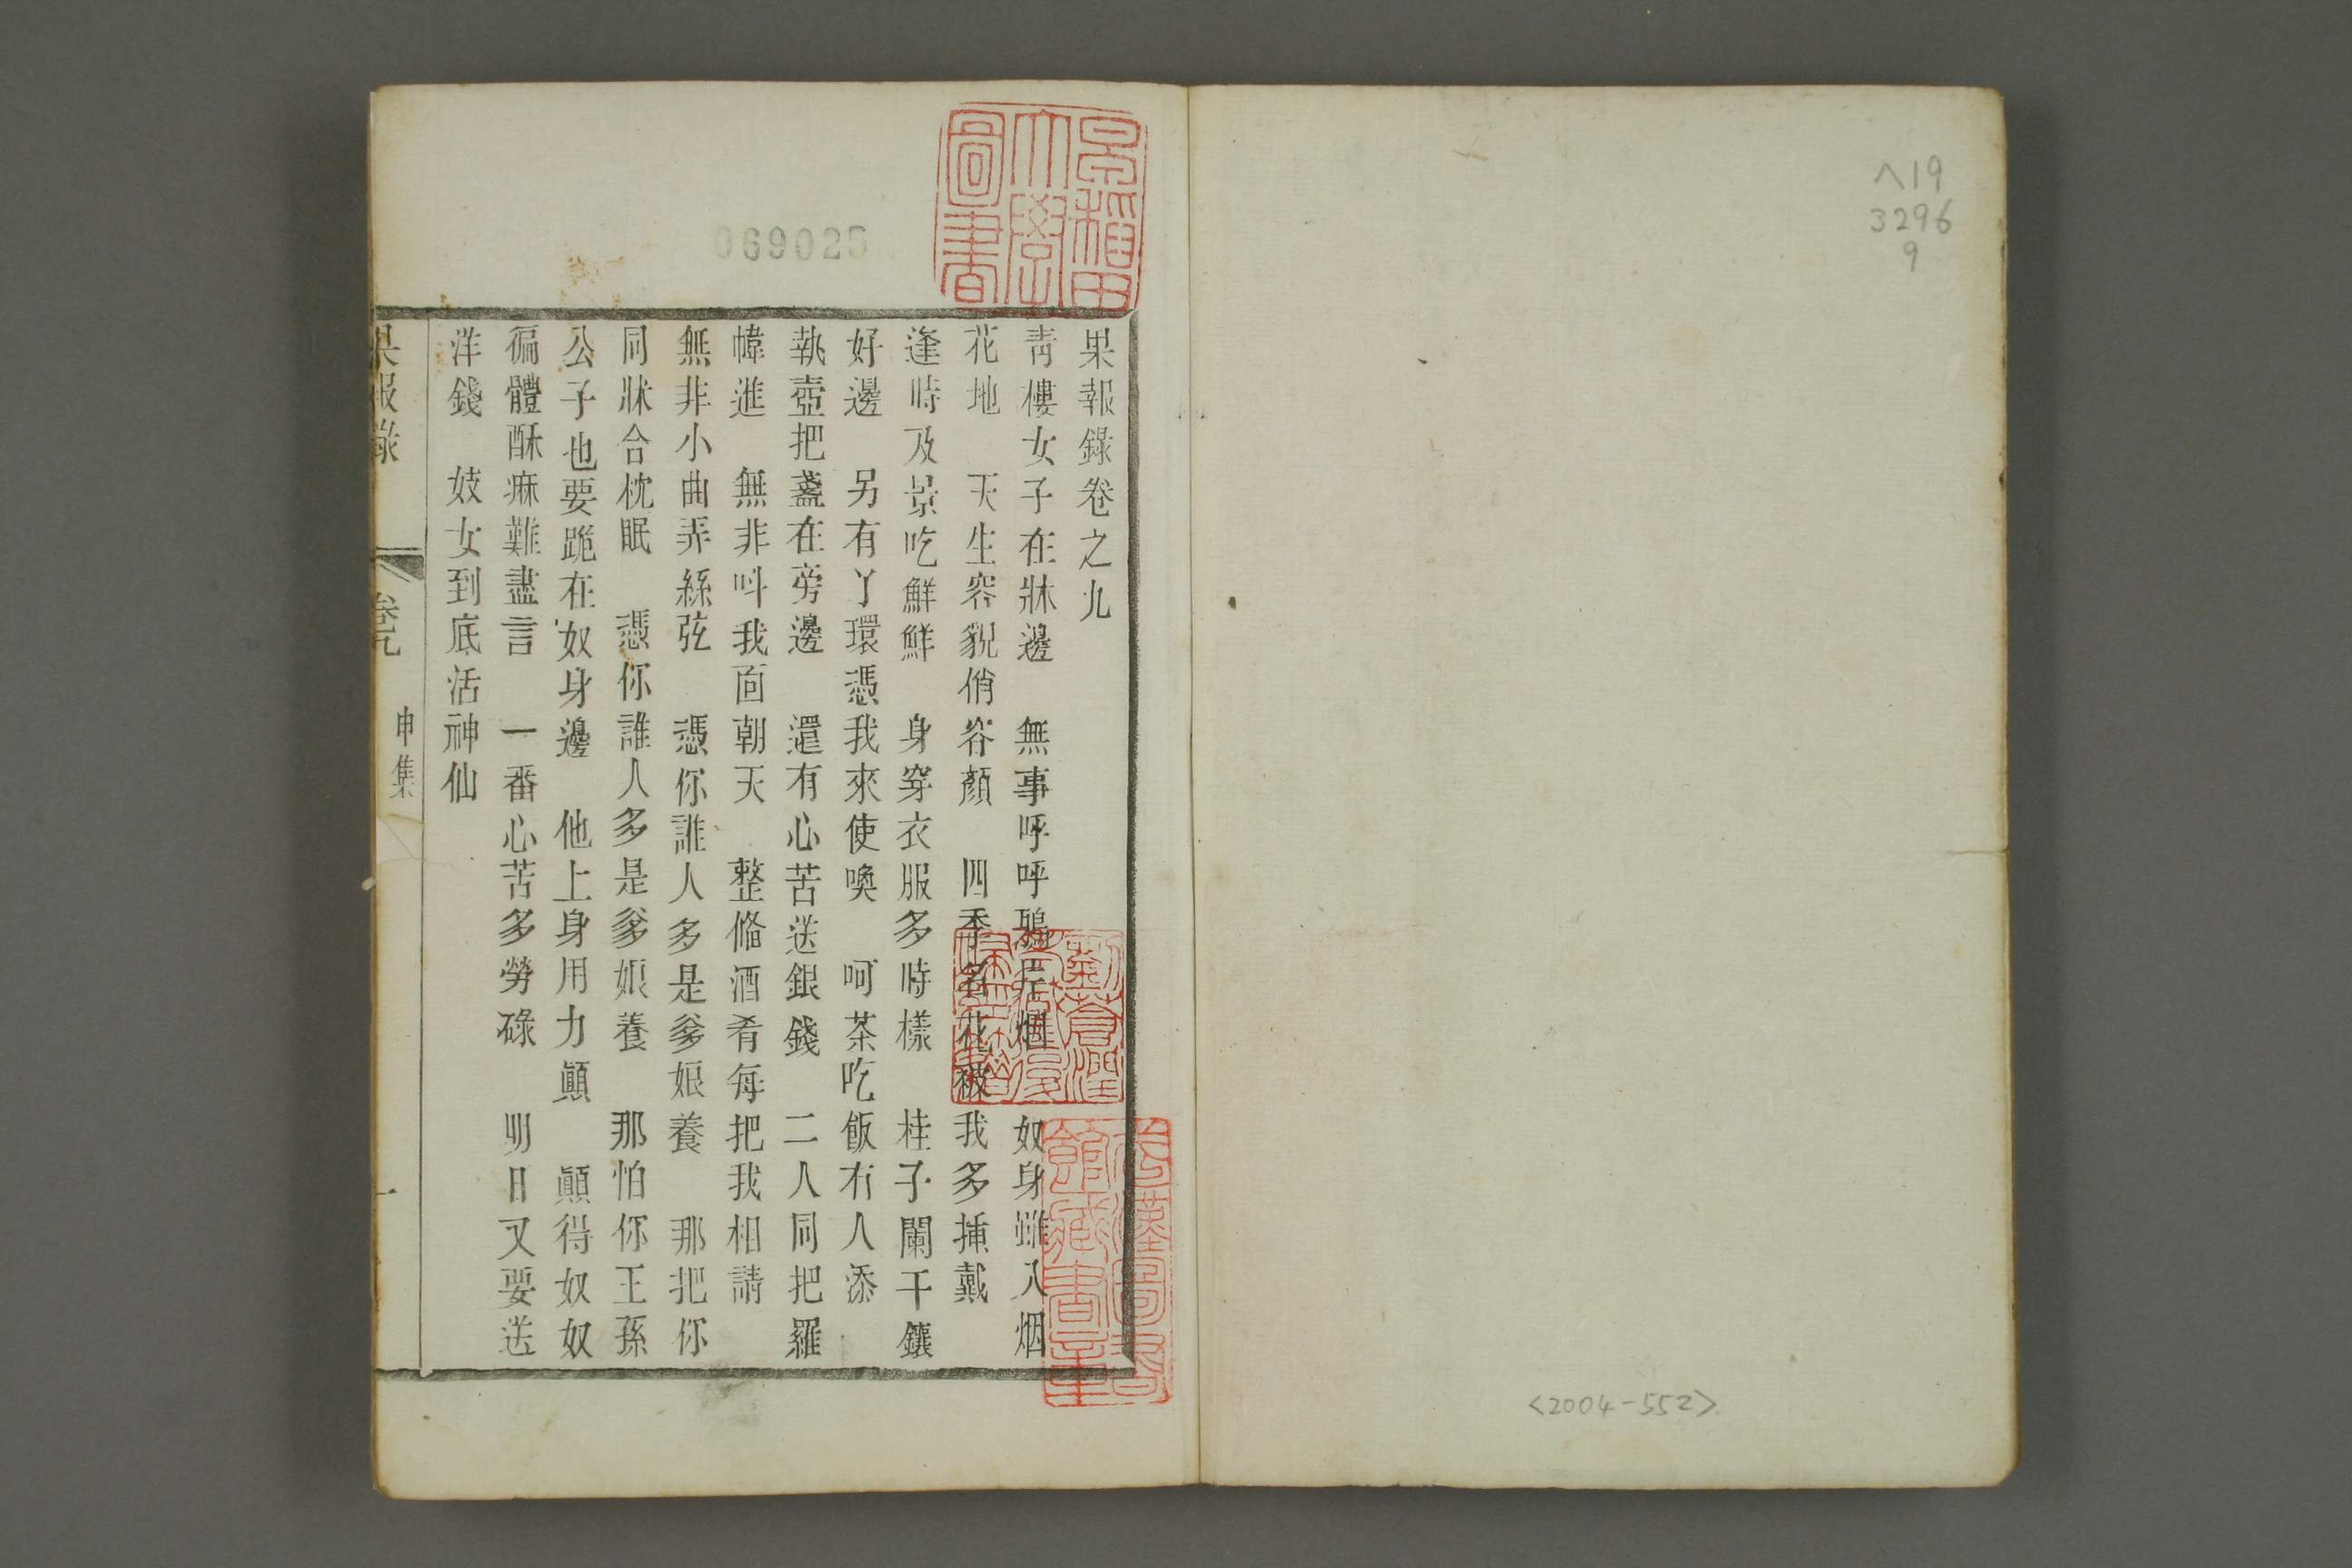 ヘ19
3296
9
<2004-552>
早稲田大學圖書
069025
果報錄卷之九
靑樓女子在牀邊　無事呼呼鴉片烟　奴身雖入烟
花地　天生容貌俏容顏　四季名花被我多揷戴
逢時及景吃鮮鮮　身穿衣服多時樣　桂子闌干鑲
好邊　另有丫環憑我來使喚　呵茶吃飯有人添
執壺把盞在旁邊　還有心苦送銀錢　二人同把羅
幃進　無非呌我面朝天　整脩酒肴每把我相請
無非小曲弄絲弦　憑你誰人多是爹娘養　那把你
同牀合枕眠　憑你誰人多是爹娘養　那怕你王孫
公子也要跪在奴身邊　他上身用力顚　顚得奴奴
徧體酥痳難盡言　一番心苦多勞碌　明日又要送
洋錢　妓女到底活神仙
果報錄　卷九　申集　一